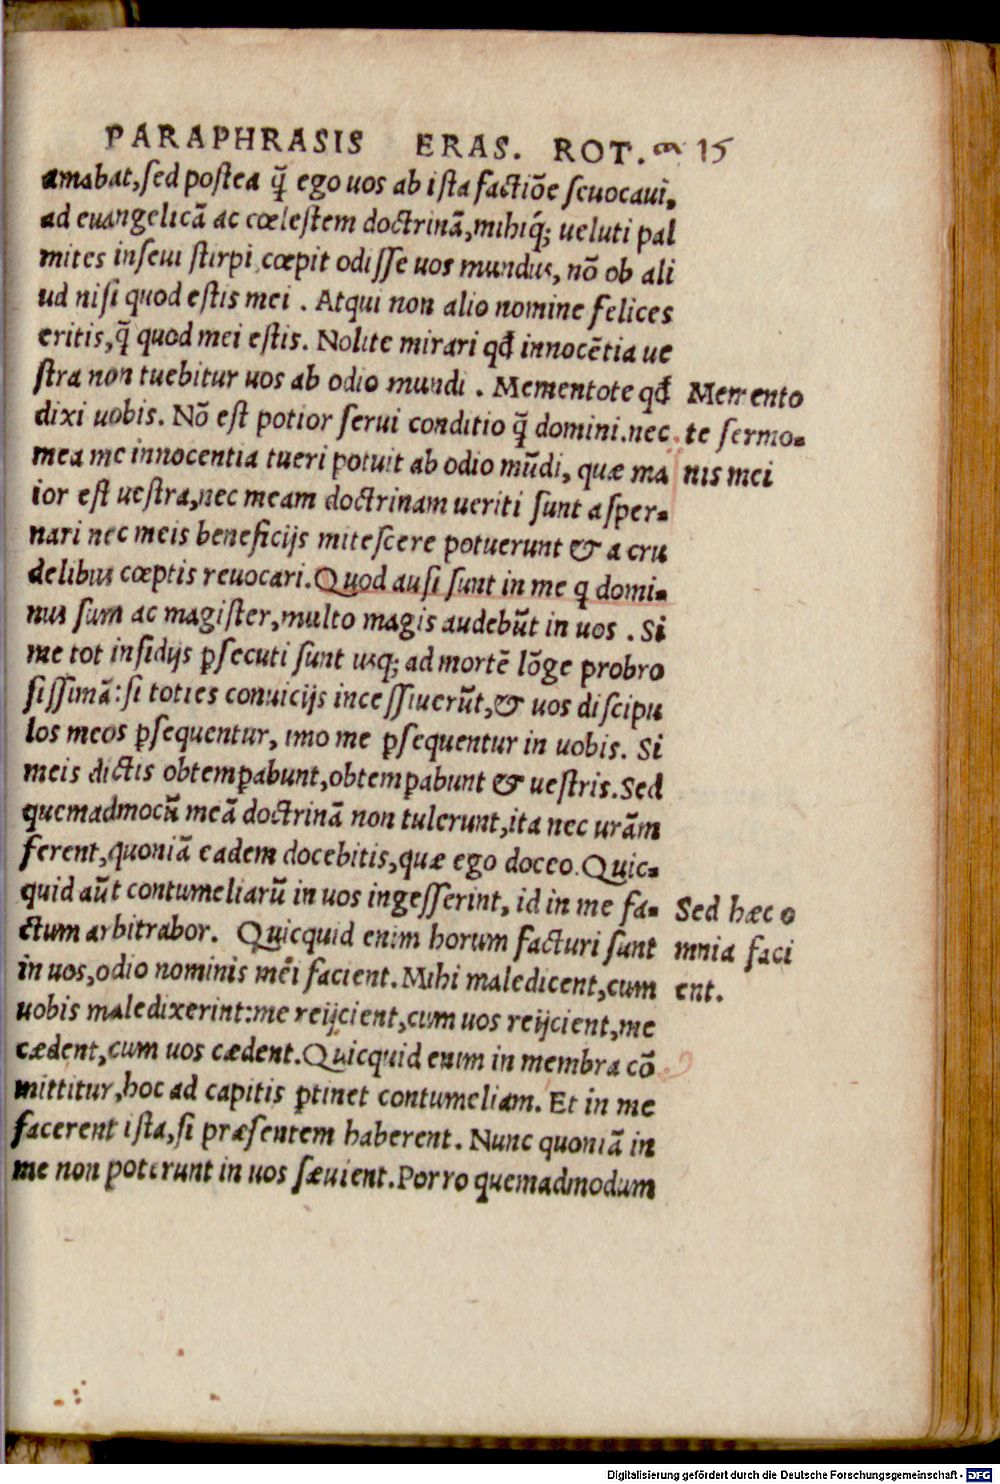 PARAPHRASIS ERAS. ROT. 15
amabat, sed postea q̃ ego uos ab ista factiõe seuocaui,
ad euangelicã ac cœlestem doctrinã, mihiq́; ueluti pal
mites inseui stirpi, cœpit odisse uos mundus, nõ ob ali
ud nisi quod estis mei . Atqui non alio nomine felices
eritis, q̃ quod mei estis. Nolite mirari qđ innocẽtia ue
stra non tuebitur uos ab odio mundi . Mementote qđ
dixi uobis. Nõ est potior serui conditio q̃ domini. nec
mea me innocentia tueri potuit ab odio mũdi, quæ ma
ior est uestra, nec meam doctrinam ueriti sunt asper-
nari nec meis beneficijs mitescere potuerunt & a cru
delibus cœptis reuocari. Quod ausi sunt in me q domi-
nus sum ac magister, multo magis audebũt in uos . Si
me tot insidijs ꝑsecuti sunt usq; ad mortẽ lõge probro
sissimã: si toties conuicijs incessiuerũt, & uos discipu
los meos ꝑsequentur, imo me ꝑsequentur in uobis. Si
meis dictis obtemꝑabunt, obtemꝑabunt & uestris. Sed
quemadmodũ meã doctrinã non tulerunt, ita nec urãm
ferent, quoniã eadem docebitis, quæ ego doceo. Quic-
quid aũt contumeliarũ in uos ingesserint, id in me fa-
ctum arbitrabor. Quicquid enim horum facturi sunt
in uos, odio nominis mei facient. Mihi maledicent, cum
uobis maledixerint: me reijcient, cum uos reijcient, me
cædent, cum uos cædent. Quicquid enim in membra cõ
mittitur, hoc ad capitis ꝑtinet contumeliam. Et in me
facerent ista, si præsentem haberent. Nunc quoniã in
me non poterunt in uos sæuient. Porro quemadmodum
Memento
te sermo-
nis mei
Sed hæc o
mnia faci
ent.
Digitalisierung gefördert durch die Deutsche Forschungsgemeinschaft - DFG